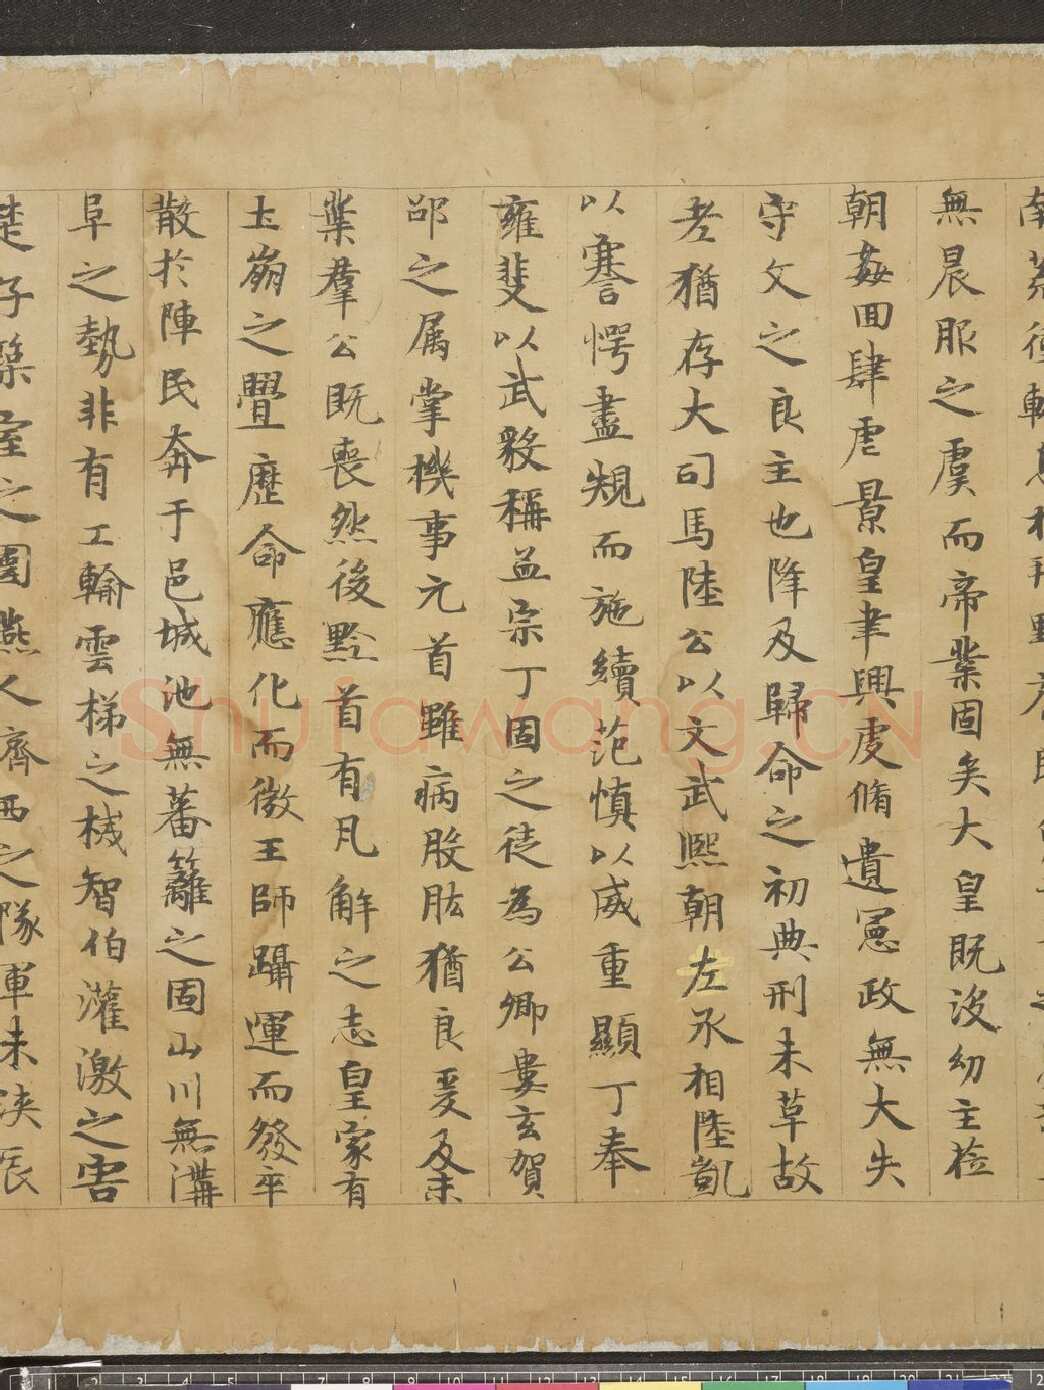 南荒衝輣息於朔野齊民
無晨服之虞而帝業固矣大皇既没幼主莅
朝姦回肆虐景皇聿興虔脩遺憲政無大失
守文之良主也降及歸命之初典刑未草故
老猶存大司馬陸公以文武熙朝左丞相陸凱
以謇愕盡規而施續范慎以威重顯丁奉
雍斐以武毅稱孟宗丁固之徒為公卿婁玄賀
邵之属掌機事元首雖病股肱猶良爰及末
葉羣公既喪然後黔首有凡解之志皇家有
土崩之舋歷命應化而微王師躡運而發卒
散扵陣民奔于邑城池無蕃籬之固山川無溝
阜之勢非有工輸雲梯之械智伯灌激之害
楚子築室之圍燕人齊西之隊軍未浹辰
Shufawang.CN